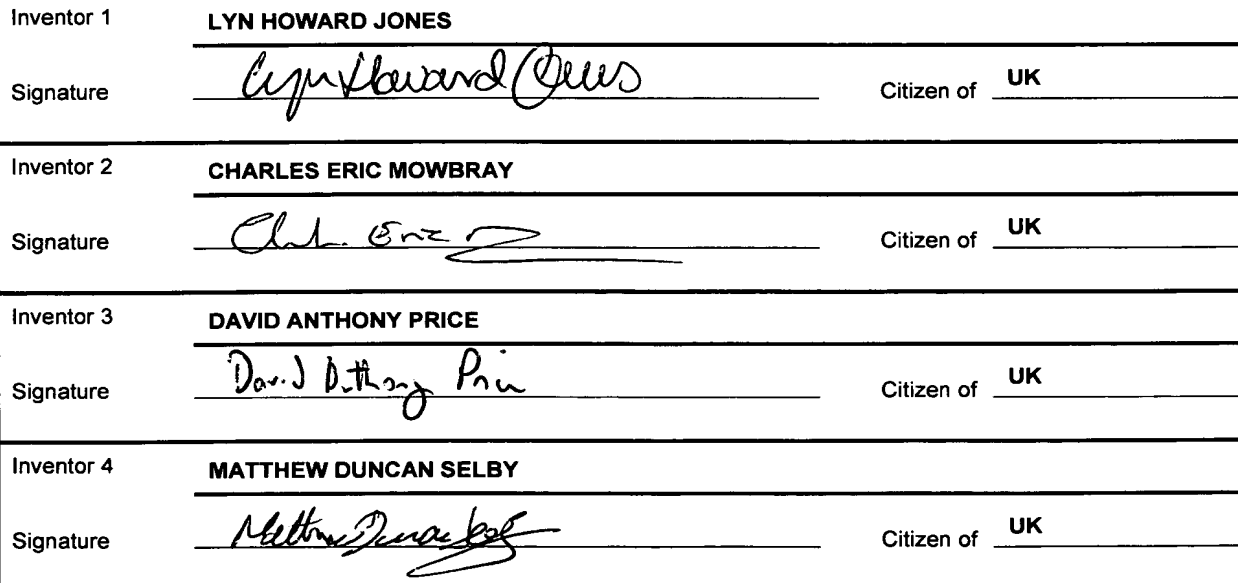 Inventor 1 LYN HOWARD JONES
Signature Lyn Howard Jones Citizen of UK
Inventor 2 CHARLES ERIC MOWBRAY
Signature Eric Citizen of UK
Inventor 3 DAVID ANTHONY PRICE
Signature David Anthony Price Citizen of UK
Inventor 4 MATTHEW DUNCAN SELBY
Signature Matthew Duncan Selby Citizen of UK